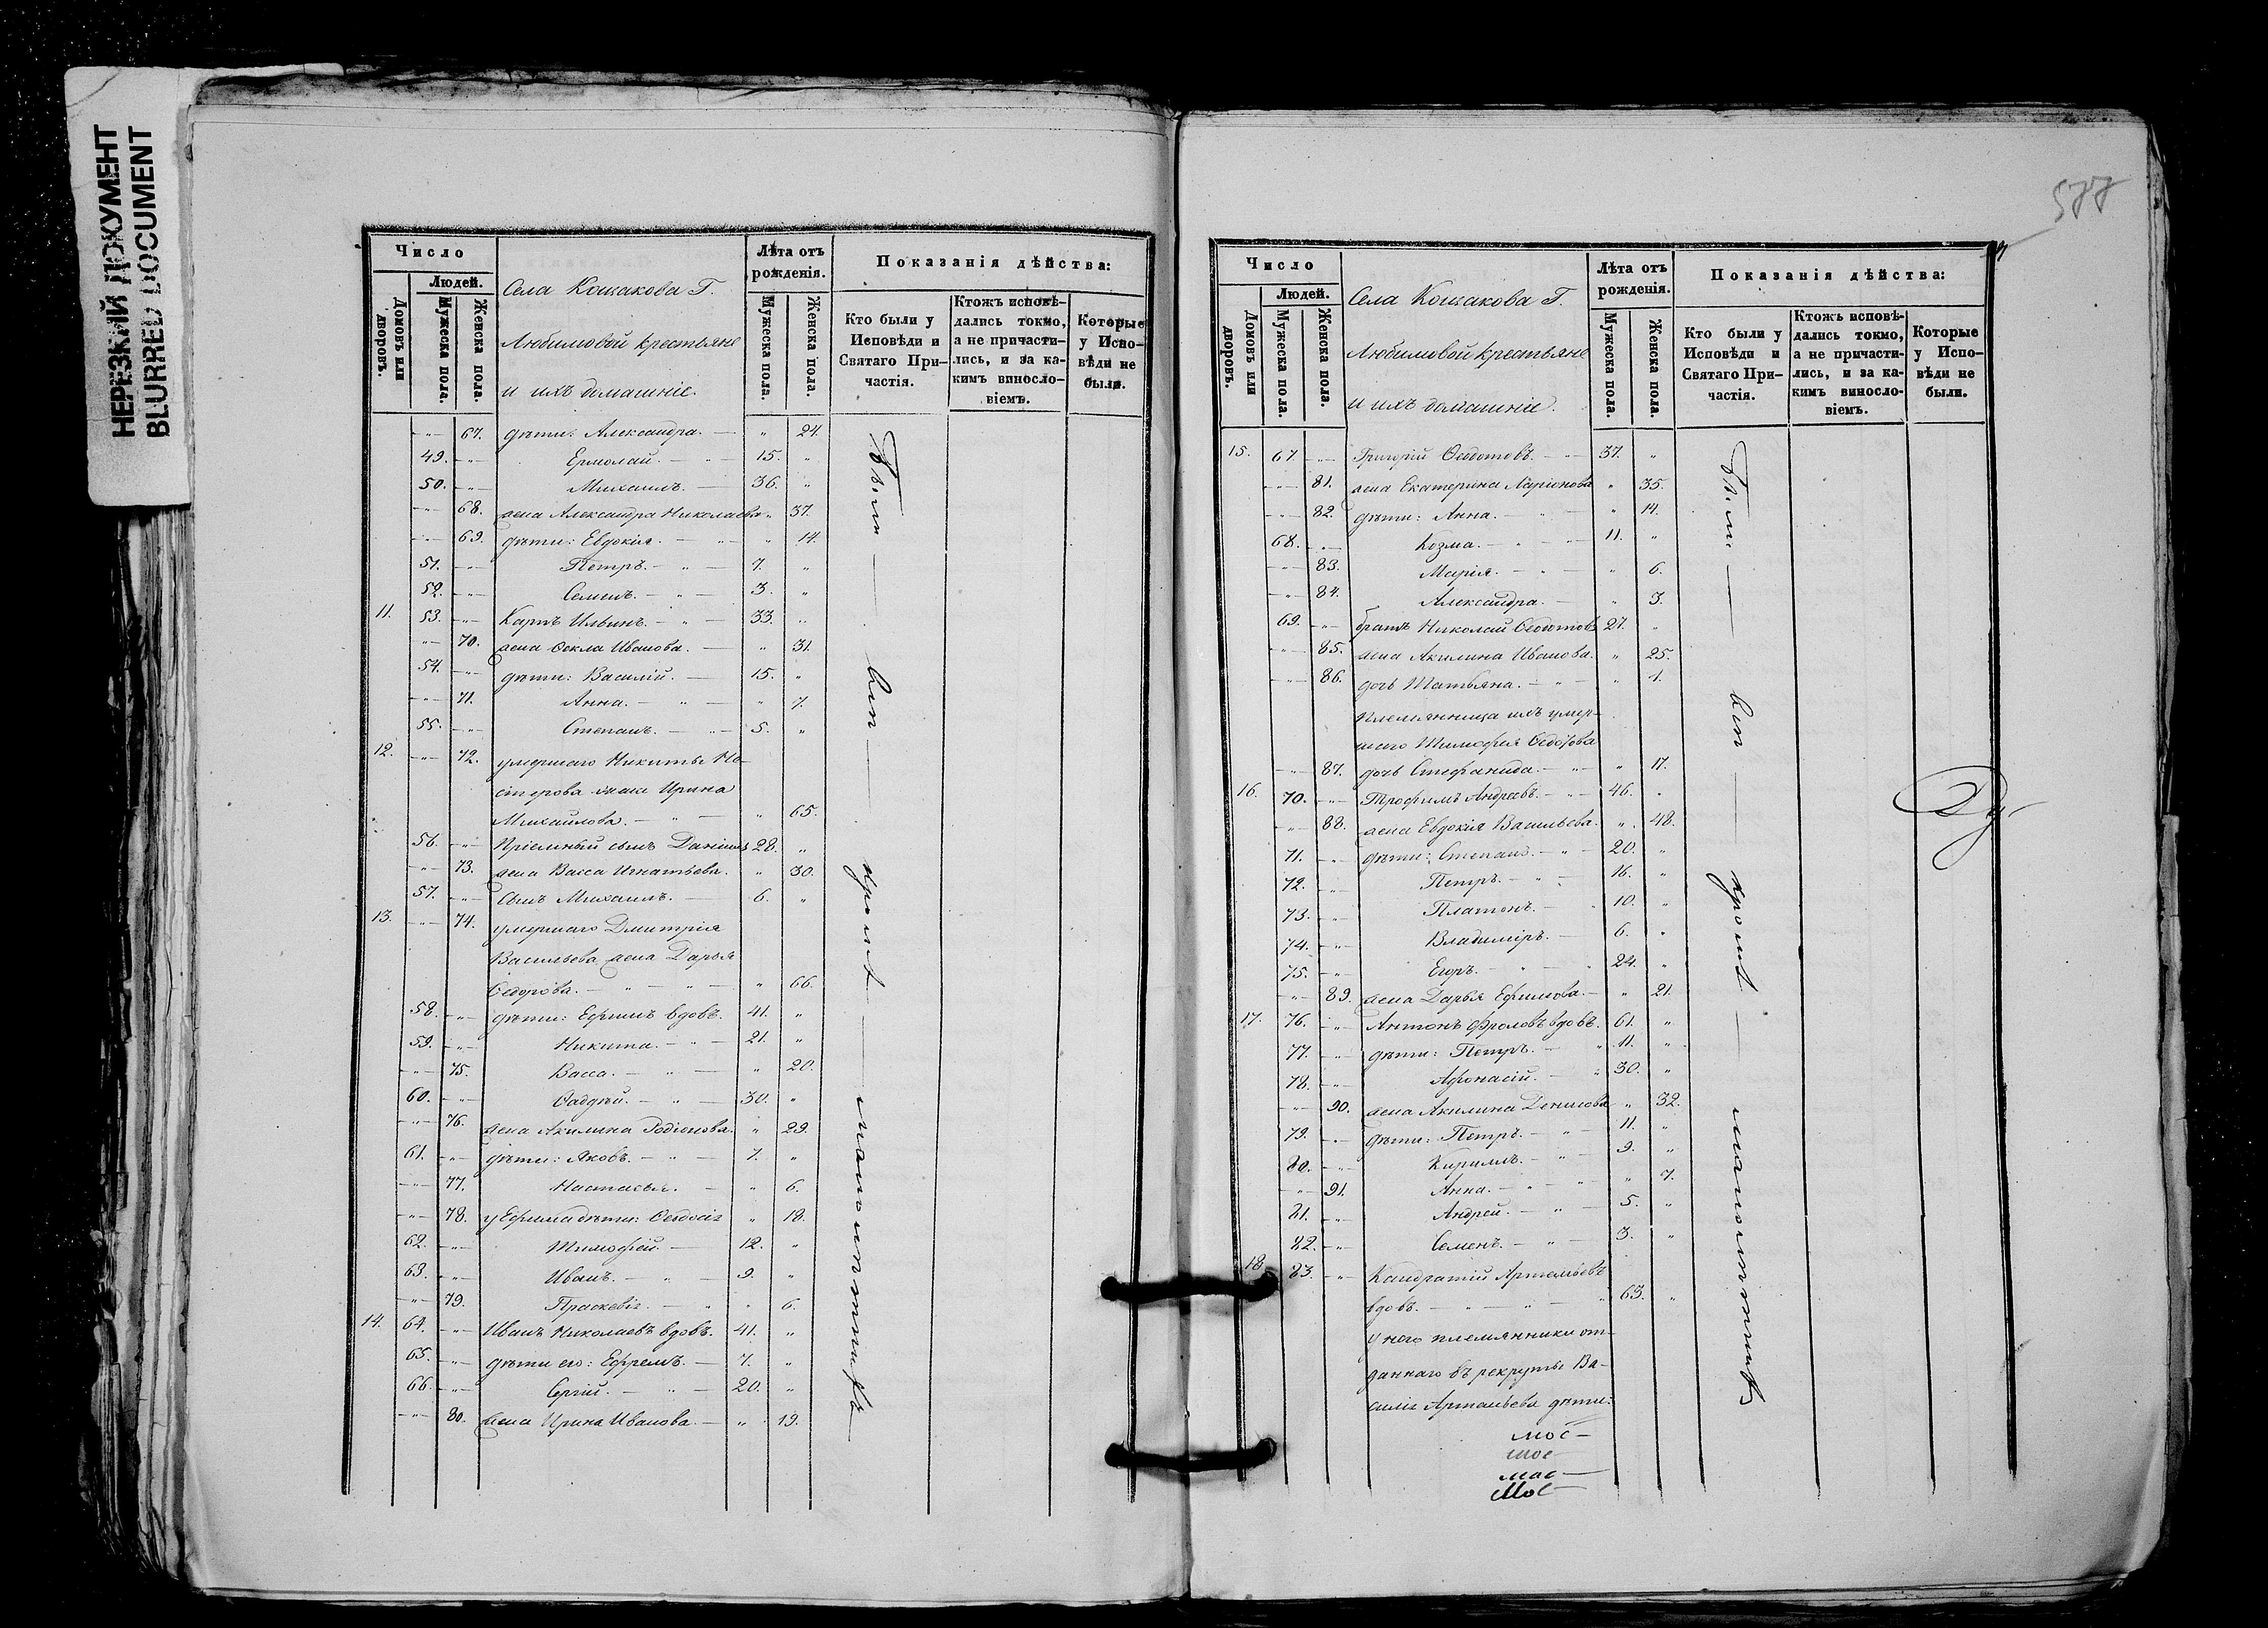 НЕРЕЗКИЙ ДОКУМЕНТ
BLURRED DOCUMENT
Число
Людей.
Домовъ или дворовъ.
Мужеска пола.
Женска пола.
Села Кощакова Г.
Любимовой крестьяне
и ихъ домашніе.
Лѣта отъ рожденія.
Мужеска пола.
Женска пола.
Показанія дѣйства:
Кто были у Исповѣди и Святаго Причастія.
Ктожъ исповѣдались токмо, а не причастились, и за какимъ винословіемъ.
Которые у Исповѣди не были.
-"- 67. дѣти: Александра. — " 24.
49. -"- Ермолай. - " - 15. "
50. -"- Михаилъ. — 36. "
-"- 68. жена Александра Николаева " 37.
-"- 69. дѣти: Евдокія. — " 14.
51. -"- Петръ. - " - 7. "
52. -"- Семенъ. - " - 3. "
11. 53. -"- Карпъ Ильинъ. - " - 33. "
-"- 70. жена Ѳекла Иванова. — " 31.
54. -"- дѣти: Василій. — 15. "
-"- 71. Анна. - " - " 7.
55. -"- Степанъ. - " - 5. "
12. -"- 72. умершаго Никиты Не-
стерова жена Ирина
Михайлова. - " - " 65.
56. -"- Пріемный сынъ Даніилъ 28. "
-"- 73. жена Васса Игнатьева. " 30.
57. -"- Сынъ Михаилъ. — 6. "
13. -"- 74. умершаго Дмитрія
Васильева жена Дарья
Ѳедорова. - " - " - " 66.
58. -"- дѣти: Ефимъ вдовъ. 41. "
59. -"- Никита. - " - 21. "
-"- 75. Васса. - " - " 20.
60. -"- Ѳаддѣй. - " - 30. "
-"- 76. жена Акилина Родіонова. " 29.
61. -"- дѣти: Яковъ. - " - 7. "
-"- 77. Настасья. - " 6.
-"- 78. у Ефима дѣти: Ѳеодосія " 18.
62. -"- Тимофей. — 12. "
63. -"- Иванъ. - " - 9. "
-"- 79. Праскевія. - " " 6.
14. 64. -"- Иванъ Николаевъ вдовъ. 41. "
65. -"- дѣти его: Ефремъ. — 7. "
66. -"- Сергій. - " - 20. "
-"- 80. жена Ирина Иванова. — " 19.
Были — вси — кромѣ — малолѣтнихъ
577
Число
Людей.
Домовъ или дворовъ.
Мужеска пола.
Женска пола.
Села Кощакова Г.
Любимовой крестьяне
и ихъ домашніе.
Лѣта отъ рожденія.
Мужеска пола.
Женска пола.
Показанія дѣйства:
Кто были у Исповѣди и Святаго Причастія.
Ктожъ исповѣдались токмо, а не причастились, и за какимъ винословіемъ.
Которые у Исповѣди не были.
15. 67. -"- Григорій Ѳедотовъ. - " - 37. "
-"- 81. жена Екатерина Ларіонова " 35.
-"- 82. дѣти: Анна. - " - " 14.
68. -"- Козма. - " - 11. "
-"- 83. Марія. - " - " 6.
-"- 84. Александра. - " 3.
69. -"- братъ Николай Ѳедотовъ 27. "
-"- 85. жена Акилина Иванова. " 25.
-"- 86. дочь Татьяна. - " - " 1.
Племянница ихъ умер-
шаго Тимофея
-"- 87. дочь Стефанида. - " - " 17.
16. 70. -"- Трофимъ Андреевъ. - " - 46. "
-"- 88. жена Евдокія Васильева. " 48.
71. -"- дѣти: Степанъ. - " - 20. "
72. -"- Петръ. - " - 16. "
73. -"- Платонъ. - " 10. "
74. -"- Владиміръ. - 6. "
75. -"- Егоръ. - " - " 24. "
-"- 89. жена Дарья Ефимова. - " 21.
17. 76. -"- Антонъ Фроловъ вдовъ. 61. "
77. -"- дѣти: Петръ. - " 11. "
78. -"- Афонасій. - " 30. "
-"- 90. жена Акилина Денисова " 32.
79. -"- дѣти: Петръ. - " - 11. "
80. -"- Кириллъ. - " - 9. "
-"- 91. Анна. - " - " " 7.
81. -"- Андрей. - " - 5. "
82. -"- Семенъ. - " - 3. "
18. 83. -"- Кандратій Артемьевъ
вдовъ. - " - " - " 63. "
у него племянники от-
даннаго въ рекруты Ва-
силія Артемьева дѣти:
Были — вси — кромѣ — малолѣтнихъ